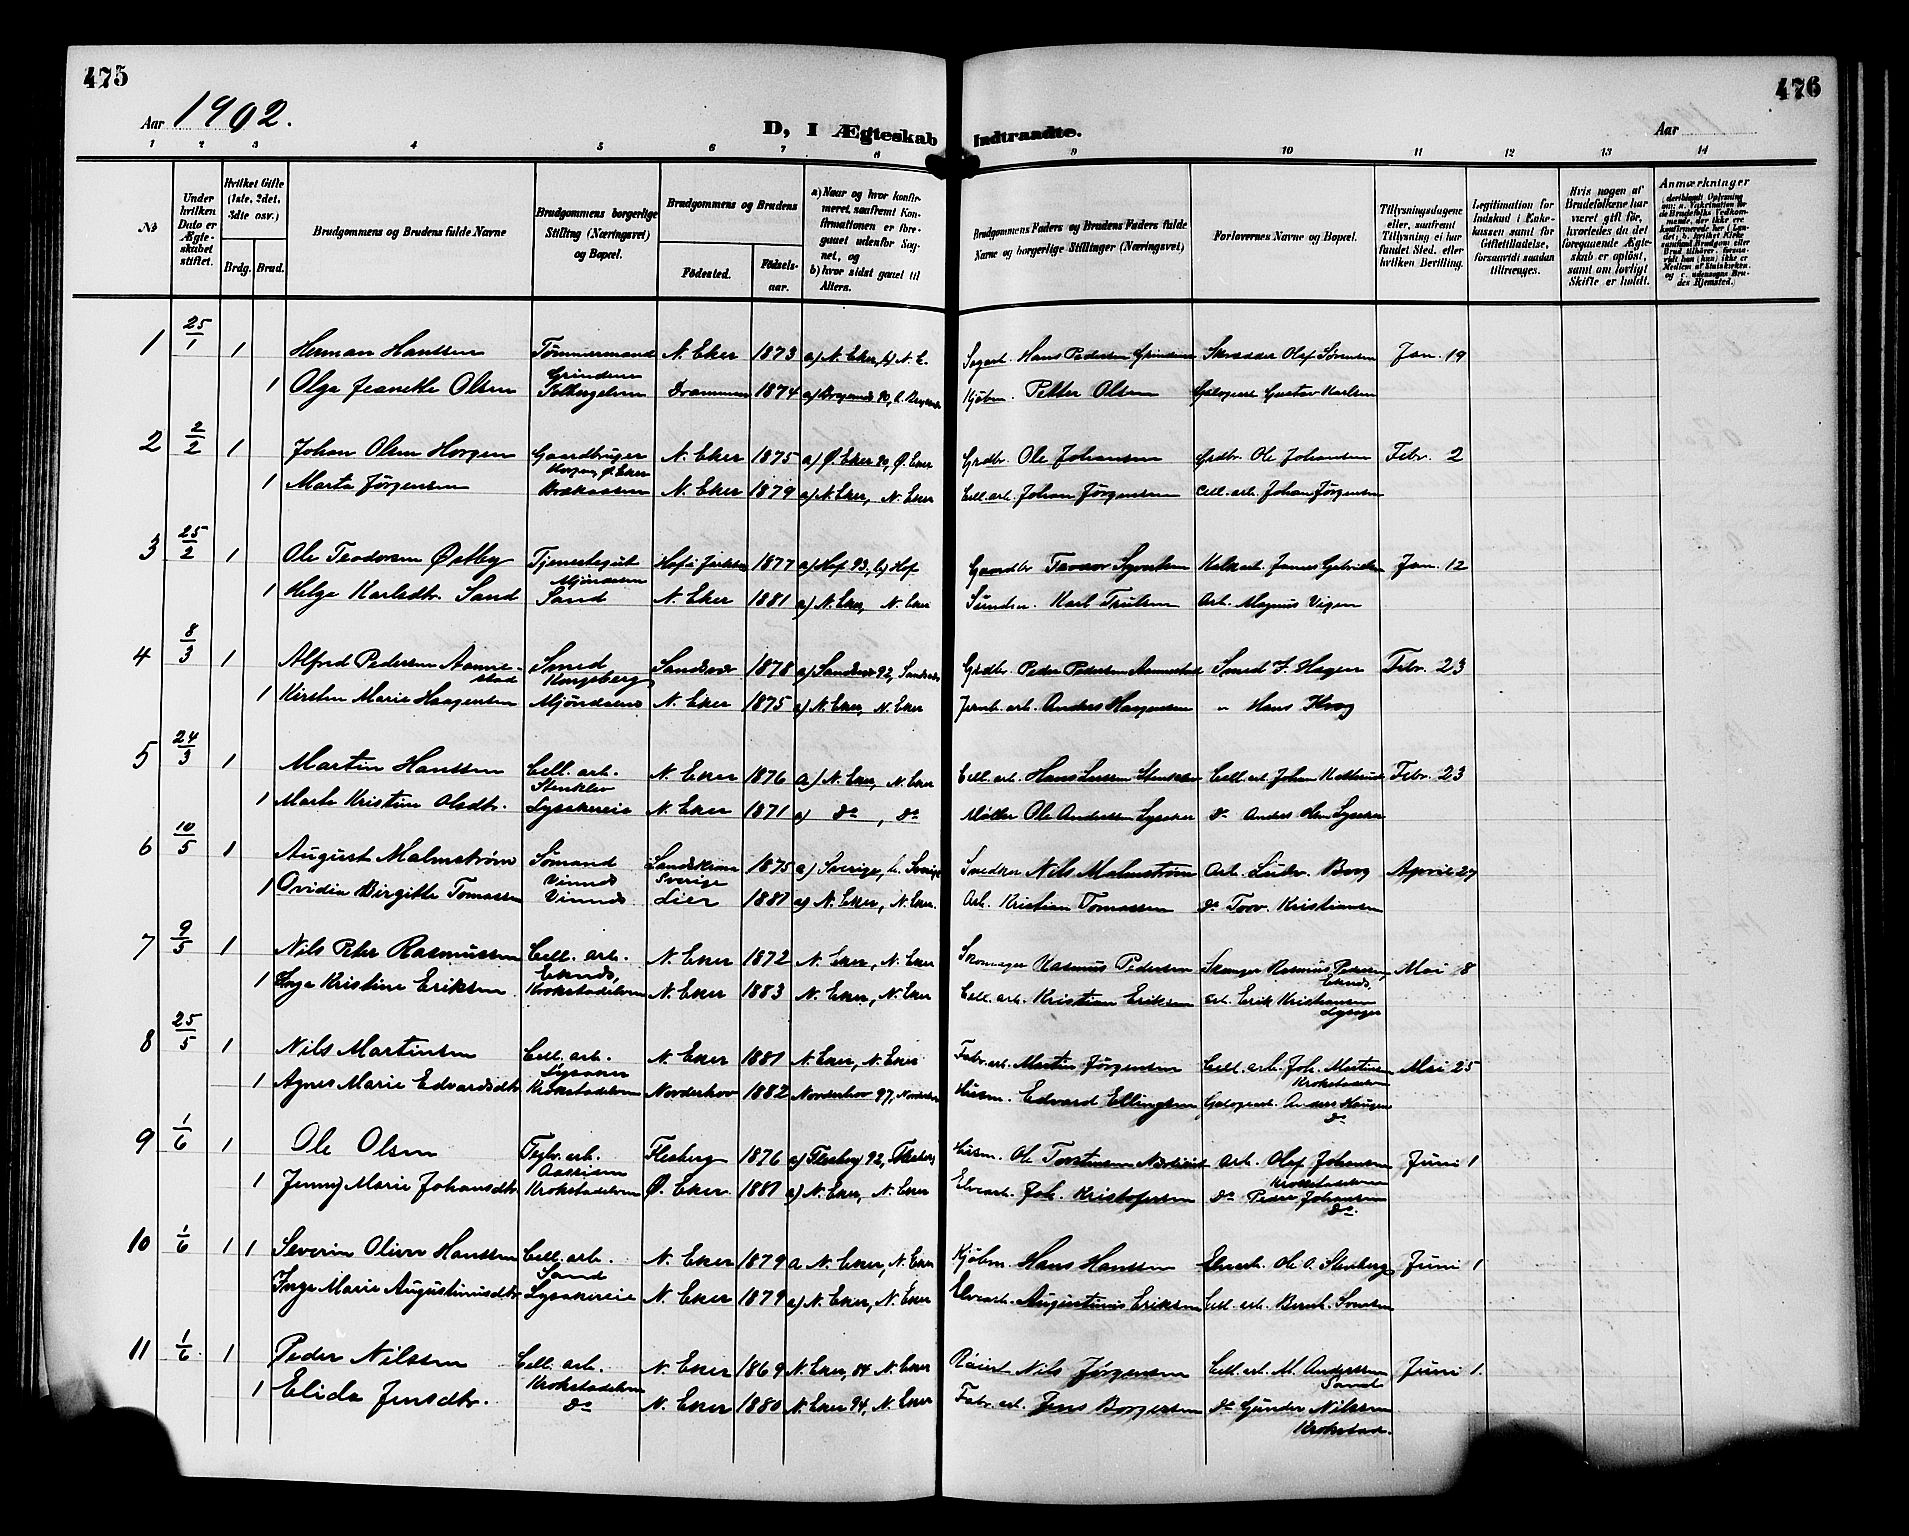 475
476
Aar 1902.
D, I Ægteskab Indtraadte.
Aar
1 2 3 4 5 6 7 8 9 10 11 12 13 14
No
Under hvilken Dato er Ægteskabet stiftet.
Hvilket Gifte (1ste, 2det, 3die osv.)
Brdg. Brud.
Brudgommens og Brudens fulde Navne
Brudgommens borgerlige Stilling (Næringsvei) og Bopæl.
Brudgommens og Brudens
Födested. Födselsaar.
a) Naar og hvor konfirmeret, saafremt Konfirmationen er foregaaet udenfor Sognet, og
b) hvor sidst gaaet til Alters.
Brudgommens Faders og Brudens Faders fulde Navne og borgerlige Stillinger (Næringsvei)
Forlovernes Navne og Bopæl.
Tillysningsdagene eller, saafremt Tillysning ei har fundet Sted, efter hvilken Bevilling.
Legitimation for Indskud i Enkekassen samt for Giftetilladelse, forsaavidt saadan tiltrænges.
Hvis nogen af Brudefolkene har været gift för, hvorledes da det foregaaende Ægteskab er oplöst, samt om lovligt Skifte er holdt.
Anmærkninger
1 25/1 1 Herman Hanssen Tømmermand N. Eker 1873 a) N. Eker, b) N. E. Hans Pedersen Skrædder Olof Sørensen Jan. 19
Grindene
1 Olga Jeanette Olsen Solbergelven Drammen 1874 Kjøbm. Petter Olsen Gustav Karlsen
2 2/2 1 Johan Olsen Horgen Gaardbruger N. Eker 1875 a) Ø. Eker 90, Ø. Eker Grdbr. Ole Johansen Grdbr. Ole Johansen Febr. 2
Horgen, Ø. Eker
1 Marta Jørgensen N. Eker 1879 a) N. Eker, N. Eker Cell. arb. Johan Jørgensen Cell. arb. Johan Jørgensen
3 25/2 1 Ole Teodorsen Østby Tjenestegut 1877 a) Hof 93, b) Hof Gaardbr. Jan. 12
Mjøndalen
1 Helga Karlsdtr. Sand Sand N. Eker 1881 a) N. Eker, N. Eker Karl Trulsen Arb. Magnus Vigen
4 8/3 1 Alfred Pedersen Aannestad Smed Sandsvær 1878 a) Sandsvær 92, Sandsvær Grdbr. Peder Pedersen Aannestad Smed F. Hagen Febr. 23
Kongsberg
1 Kirsten Marie Haagensen Mjøndalen N. Eker 1875 a) N. Eker, N. Eker Jernb. arb. Anders Haagensen " Hans Krog
5 24/3 1 Martin Hanssen Cell. arb. N. Eker 1876 a) N. Eker, N. Eker Cell. arb. Hans Larsen Stenklev Cell. arb. Johan Febr. 23
Stenklev
1 Marte Kristine Olsdtr. Lysakereie N. Eker 1871 a) do, do Møller Ole Andersen Lysaker do Anders Olsen Lysaker
6 10/5 1 August Malmstrøm Sømand Landskrona 1875 a) Sverige, b. Sverige Nils Malmstrøm Arb. Ludv. Borg April 27
Vinnes Sverige
1 Ovidia Birgitte Tomassen Vinnes Lier 1881 a) N. Eker, N. Eker. Arb. Kristian Tomassen do Torv. Kristiansen
7 9/5 1 Nils Peter Rasmussen Cell. arb. N. Eker 1872 N. Eker, N. Eker Skomager Rasmus Pedersen Skomager Rasmus Pedersen Mai 8
Eknes, Eknes,
1 Inga Kristine Eriksen Krokstadelven N. Eker 1883 N. Eker, N. Eker Cell. arb. Kristian Eriksen arb. Erik Kristiansen
8 25/5 1 Nils Martinsen Cell. arb. N. Eker 1881 N. Eker, N. Eker Fabr. arb. Martin Jørgensen Cell. arb. Joh. Martinsen Mai 25
Lysaker Krokstadelven
1 Agnes Marie Edvardsdtr Krokstadelven Norderhov 1882 Norderhov 97, Norderhov Husm. Edvard Ellingsen Anders Haugen
do
9 1/6 1 Ole Olsen Teglv. arb. Flesberg 1876 a) Flesberg 92, Flesberg Husm. Ole Torstensen arb. Olaf Johansen Juni 1
Aasrisen Krokstadelven
1 Jenny Marie Johansdtr Krokstadelven Ø. Eker 1881 a) N. Eker, N. Eker Elvearb. Joh. Kristofersen do Peder Johansen
do.
10 1/6 1 1 Severin Oliver Hanssen Cell. arb. N. Eker 1879 a N. Eker, N. Eker Kjøbm. Hans Hanssen Elvearb. Ole A. Stenberg Juni 1
Sand
Inga Marie Augustinusdtr Lysakereie N. Eker 1879 a) N. Eker, N. Eker Elvearb. Augustinus Eriksen Cell. arb. Bernh.
11 1/6 1 Peder Nilssen Cell. arb. N. Eker 1869 N. Eker, 84 N. Eker Nils Jørgensen Cell. arb. M. Anderssen Juni 1.
Krokstadelven Sand
1 Elida Jensdtr. do N. Eker 1880 N. Eker 94, N. Eker Fabr. arb. Jens Borgersen do Gunder Nilssen
Krokstad.